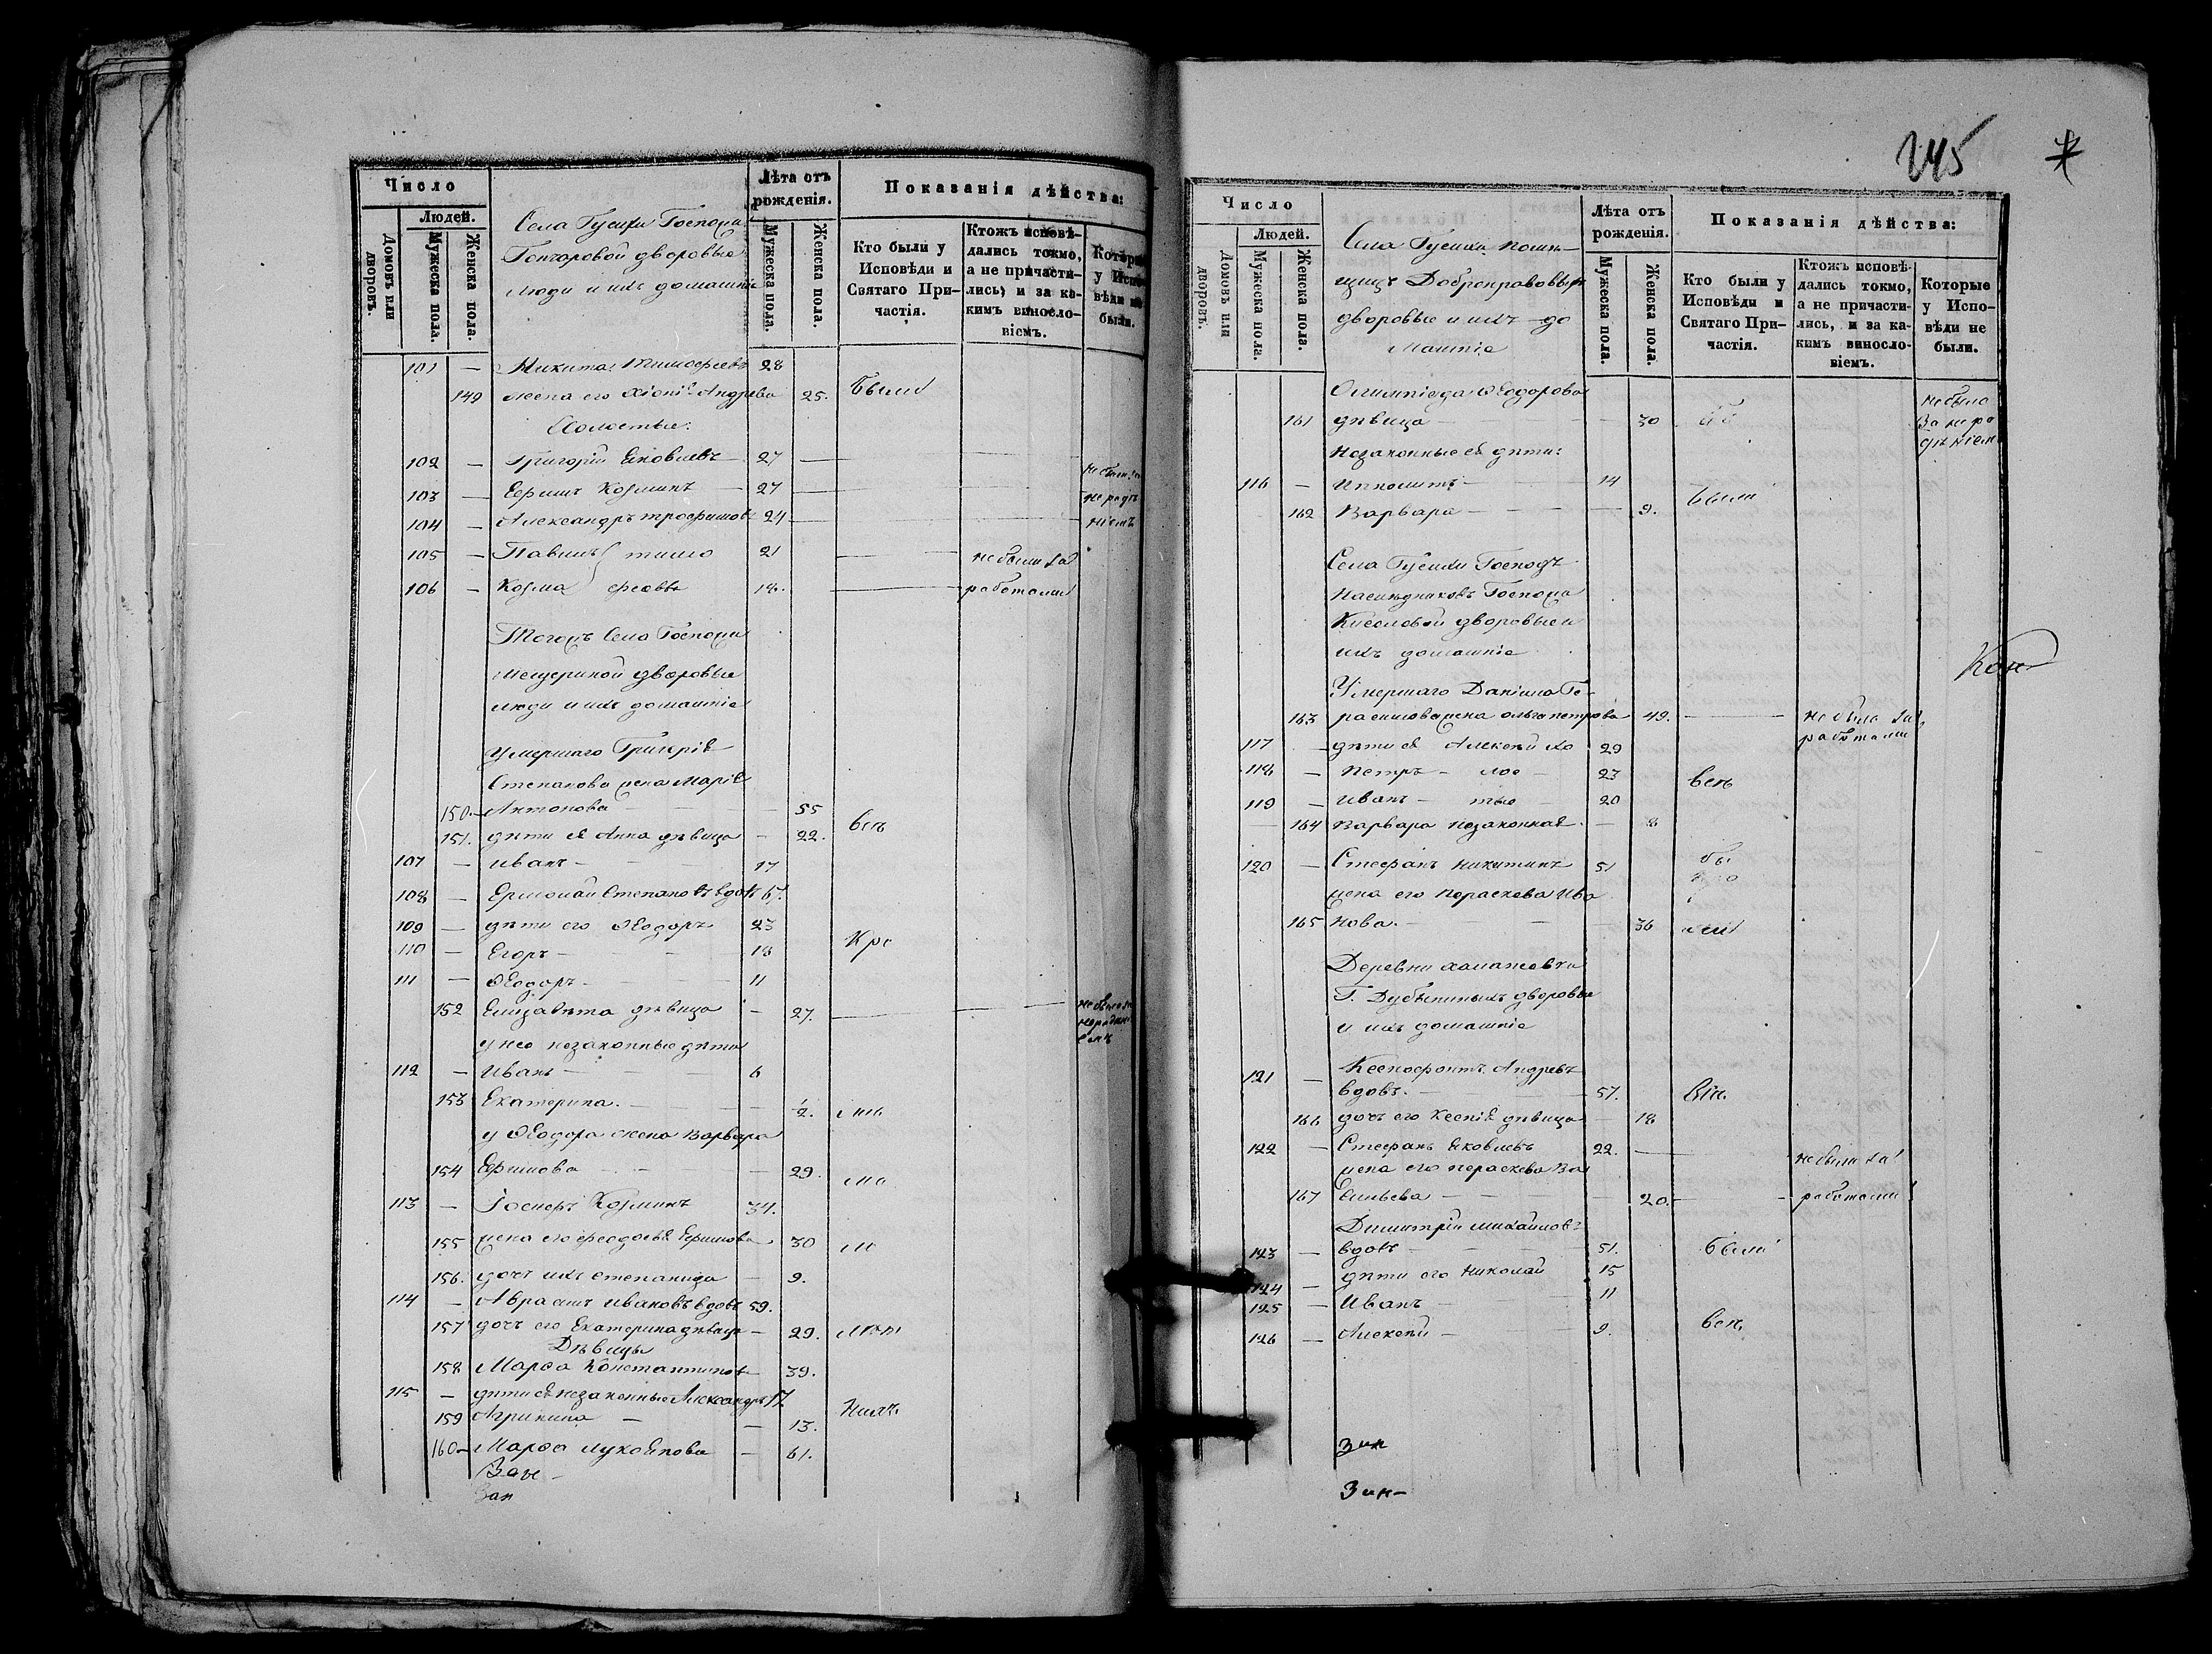 Число
Людей.
Домовъ или дворовъ.
Мужеска пола.
Женска пола.
Села Гусихи Госпожи
дворовые
люди и ихъ домашніе
Лѣта отъ рожденія.
Мужеска пола.
Женска пола.
Показанія дѣйства:
Кто были у Исповѣди и Святаго Причастія.
Ктожъ исповѣдались токмо, а не причастились, и за какимъ винословіемъ.
101 — Никита Тимофеевъ 28
149 жена его Хіонія Андрева 25. были
Холостые:
102 — Григорій Яковлевъ — 27
103 — Ефимъ Козминъ — 27
104 — Александръ трофимовъ 24
105 — Павелъ тимо 21 не были за
106 — Козма феовы 18. работами
Тогожъ Села Госпожи
Мещериной дворовые
люди и ихъ домашніе
умершаго Григорія
Степанова жена Марія
150. Антонова — 55
151. дѣти ея Анна дѣвица — 22. всѣ
107 — Иванъ — 17
108 — Ермолай Степановъ вдовъ 67.
109 — дѣти его Ѳеодоръ 23
110 — Егоръ — 18 Кро
111 — Ѳеодоръ — 11
152 Елизавѣта дѣвица — 27.
у нее незаконные дѣти
112 — Иванъ — 6
153 Екатерина. — ½.
у Ѳеодора жена Варвара
154 Ефимова — 29.
113 — Іосифъ Козминъ 34.
155 жена его феодосья Ефимова 30
156. дочь ихъ степанида — 9.
114 — Авраамъ ивановъ вдовъ 59.
157 дочь его Екатерина дѣвица — 29.
Дѣвицы
158 Марѳа Константинова 39.
115 — дѣти ея незаконные Александръ 17
159 Агрипина — 13.
160 — Марѳа лукоянова — 61.
245
Число
Людей.
Домовъ или дворовъ.
Мужеска пола.
Женска пола.
Села Гусихи помѣ-
щицъ Добронравовыхъ
дворовые и ихъ до
машніе
Лѣта отъ рожденія.
Мужеска пола.
Женска пола.
Показанія дѣйства:
Кто были у Исповѣди и Святаго Причастія.
Ктожъ исповѣдались токмо, а не причастились, и за какимъ винословіемъ.
Которые у Исповѣди не были.
Олимпіада Ѳеодорова не была
161 дѣвица — 30 за нера
незаконные ея дѣти: дѣніем
116 — Ипполитъ — 14 были
162 Варвара — 9.
Села Гусихи Господъ
Наслѣдниковъ Госпожа
Киселовой дворовые и
ихъ домашніе
Умершаго Даніила Ге-
163 расимова жена ольга петрова 49. — не была за
117 — дѣти ея Алексѣй хо 29 работами
118 — Петръ — лос — 23 всѣ
119 — Иванъ — тые — 20
164 Варвара незаконная — 8
120 — Стефанъ никитинъ 51
жена его Параскева Ива
165 нова. — 36
Деревни
Г. Дубениныхъ дворовые
и ихъ домашніе
121 — Ксенофонтъ Андревъ
вдовъ. — 57. всѣ
166 дочь его Ксенія дѣвица — 18
122 — Стефанъ Яковлевъ 22. — не были за
жена его параскева Ва
167 сильева — 20. — работами
Димитрій михаиловъ
123 — вдовъ — 51. были
124 — дѣти его Николай 15
125 — Иванъ — 11
126 — Алексѣй — 9. всѣ